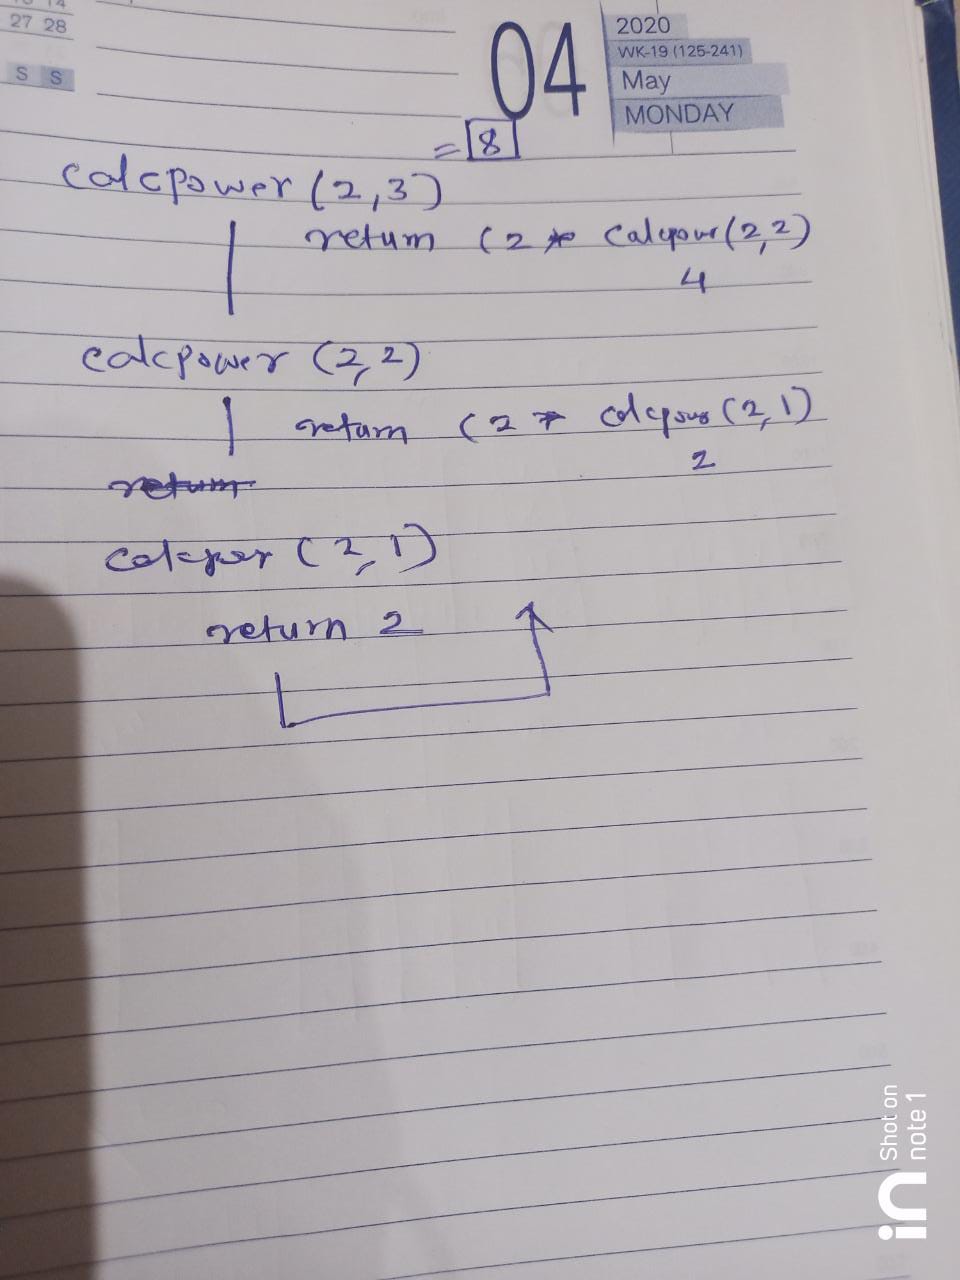 27 28
S S
04
2020
WK-19 (125-241)
May
MONDAY
= 8
calcpower (2,3)
return (2 * calcpowr (2,2)
4
calcpower (2,2)
return (2 * calcpowr (2,1)
2
return
calcper (2,1)
return 2
Shot on
note 1
in